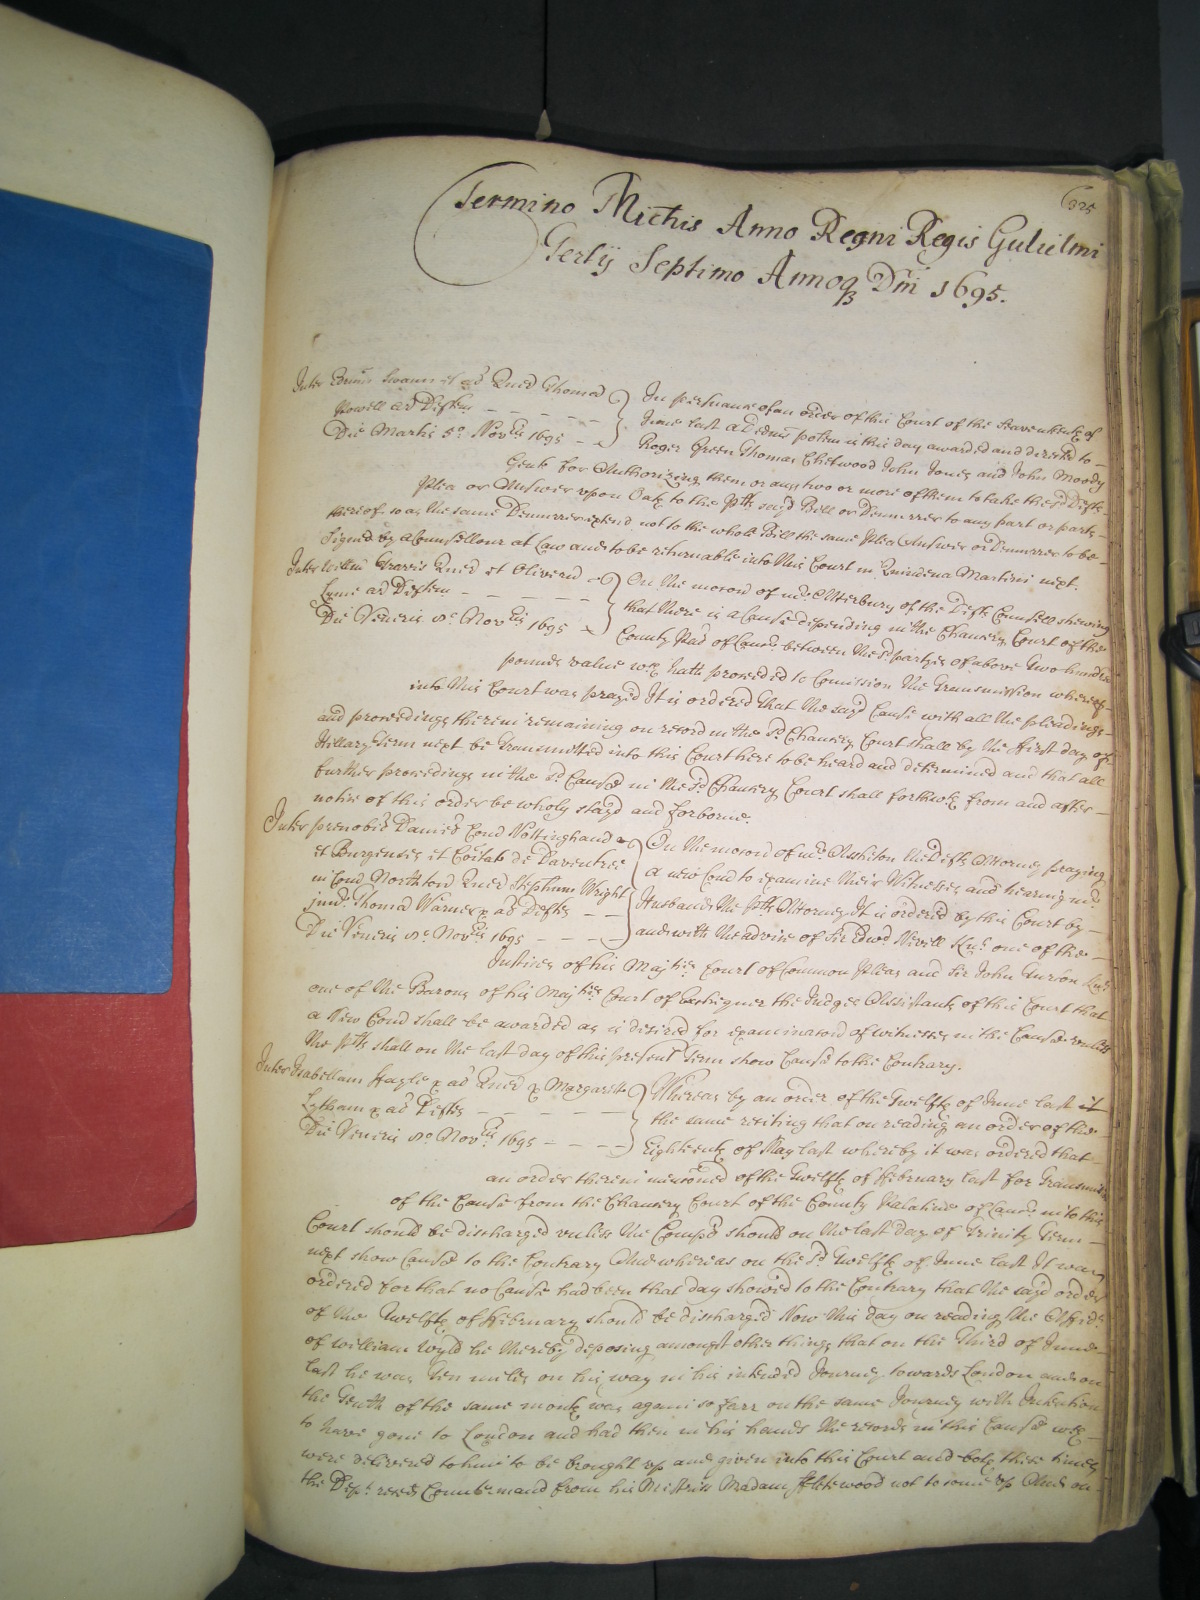 325
Termino Michis Anno Regni Regis Gulielmi
Tertij Septimo Annoq Dni 1695.
Inter Swann et ad Quer Thomas
Powell ad Deften
Die Martis 5o Novris 1695
In persuance of an order of this Court of the Seavententh of
June last a Dedimus potem is this day awarded and directed to
Roger Green Thomas Chetwood John Jones and John Moody
Gent for Authorizing them or any two or more of them to take the sd Defts
Plea or Answer upon Oath to the Plts sayd Bill or Demurrer to any part or parts
thereof so as the same Demurrer extend not to the whole Bill the same Plea Answer or Demurrer to be
Signed by a Counsellour at Law and to be returnable into this Court in Quindena Martini next.
Inter Willm Graves Quer et Oliverum
Lyme ar Deften
Die Veneris 8o Novris 1695
On the motion of mr Atterbury of the Defts Counsell shewing
that there is a Cause depending in the Chancery Court of the
County Palat of Lancr between the sd partyes of above Two hundred
pounds value wch hath proceeded to Comission the Transmission whereof
into this Court was prayed It is ordered that the sayd Cause with all the pleadings
and proceedings therein remaining on record in the sd Chancery Court shall by the first day of
Hillary Terme next be transmitted into this Court here to be heard and determined and that all
further proceedings in the sd Cause in the sd Chancery Court shall forthwth from and after
notice of this order be wholy stayd and forborne.
Inter prenobil Daniel Comd Nottingham
et Burgenses et Coitat de Daventree
in Com Northton Quer Stephum Wright
junr Thomas Warner ad Deftes
Die Veneris 8o Novris 1695
On the motion of mr Asshton the Defts Attorney praying
a new Comd to examine their Witnesses and hearing mr
Husbands the Plts Attorney It is ordered by this Court by
and with the advice of Sir Edwd Nevill Knt one of the
Justices of his Majties Court of Common Pleas and Sir John Turton Knt
one of the Barons of his Majties Court of Exchequer the Judges Assistants of this Court that
a New Comd shall be awarded as is desired for examinacon of witnesses in the Cause unless
the Plts shall on the last day of this present Terme show Cause to the Contrary.
Inter Isabellam ad Quer Margarett
Lytham ad Deftes
Die Veneris 8o Novris 1695
Whereas by an order of the Twelfth of June last
the same reciting that on reading an order of the
Eighteenth of May last whereby it was ordered that
an order therein menconed of the Twelfth of February last for Transmis
of the Cause from the Chancery Court of the County Palatine of Lancr into this
Court should be discharged unless the Complt should on the last day of Trinity Term
next show Cause to the Contrary And whereas on the sd Twelfth of June last It was
ordered for that no Cause had been that day showed to the Contrary that the said order
of the Twelfth of February should be discharged Now this day on reading the Affidt
of William Wyld he thereby deposing amongst other things that on the Third of June
last he was Ten miles on his way in his intended Journey towards London and on
the Tenth of the same month was againe so farr on the same Journey with Intention
to have gone to London and had then in his hands the records in this Cause wch
were delivered to him to be brought up and given into this Court and both these times
the Dept reced Countermand from his Mistriss Madam ffleetwood not to come up And on